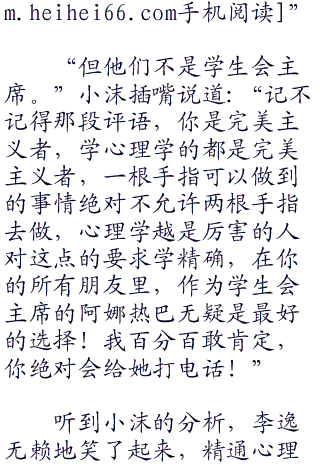 m.heihei66.com手机阅读]”
“但他们不是学生会主
席。”小沫插嘴说道:“记不
记得那段评语，你是完美主
义者，学心理学的都是完美
主义者，一根手指可以做到
的事情绝对不允许两根手指
去做，心理学越是厉害的人
对这点的要求学精确，在你
的所有朋友里，作为学生会
主席的阿娜热巴无疑是最好
的选择！我百分百敢肯定，
你绝对会给她打电话！”
听到小沫的分析，李逸
无赖地笑了起来，精通心理